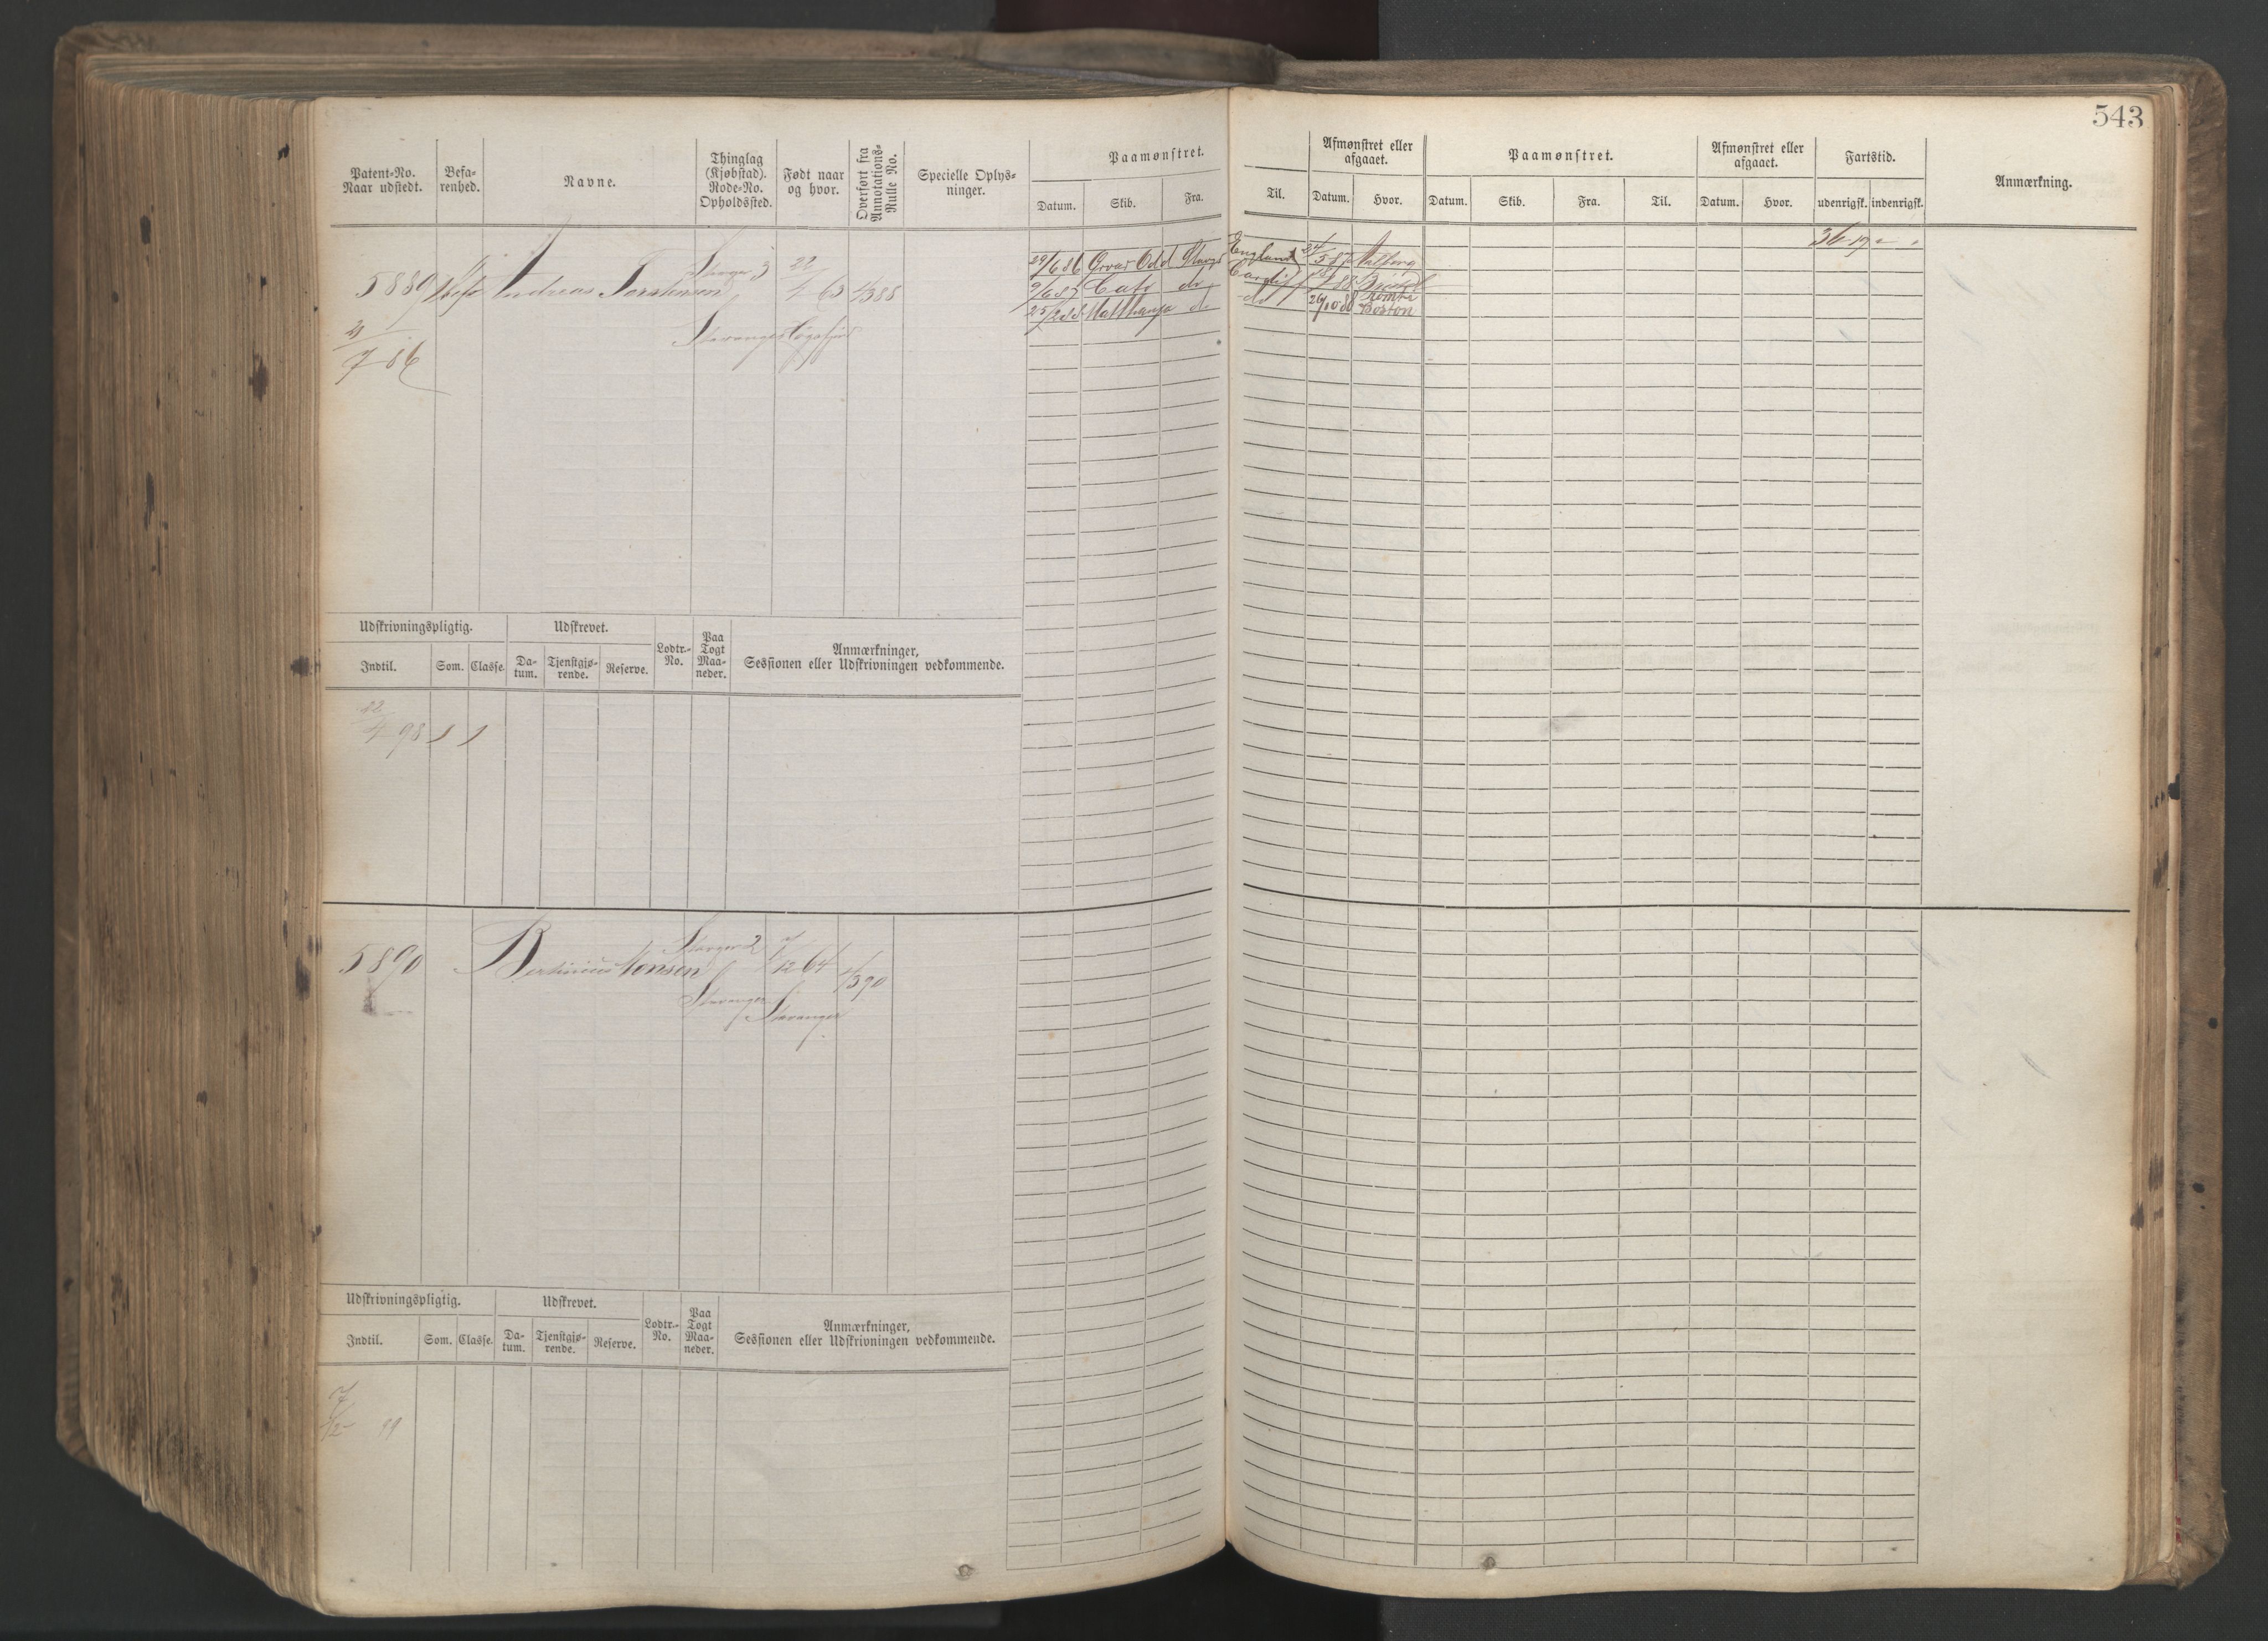 543
Patent-No. Naar udstedt.
Befarenhed.
Navne.
Thinglag (Kjøbstad). Rode-No. Opholdssted.
Født naar og hvor.
Overført fra Annotations-Rulle No.
Specielle Oplysninger.
Paamønstret.
Datum. Skib. Fra. Til.
Afmønstret eller afgaaet.
Datum. Hvor.
Paamønstret.
Datum. Skib. Fra. Til.
Afmønstret eller afgaaet.
Datum. Hvor.
Fartstid.
udenrigsk. indenrigsk.
Anmærkning.
5889 Andreas Torstensen
Stavanger
22/4 63
4/388
21/7 86
29/6 86 Orvar Odd Stavgr England
9/6 87 Cato do Cardiff
25/2 88 do do 26/10 88
Boston
Udskrivningspligtig.
Indtil. Som. Classe.
Udskrevet.
Datum. Tjenstgjørende. Reserve.
Lodtr.-No.
Paa Togt Maaneder.
Anmærkninger, Sessionen eller Udskrivningen vedkommende.
22/4 98 1 1
5890 Monsen
7/12 64
4/390
Stavanger Stavanger
Udskrivningspligtig.
Indtil. Som. Classe.
Udskrevet.
Datum. Tjenstgjørende. Reserve.
Lodtr.-No.
Paa Togt Maaneder.
Anmærkninger, Sessionen eller Udskrivningen vedkommende.
7/12 99